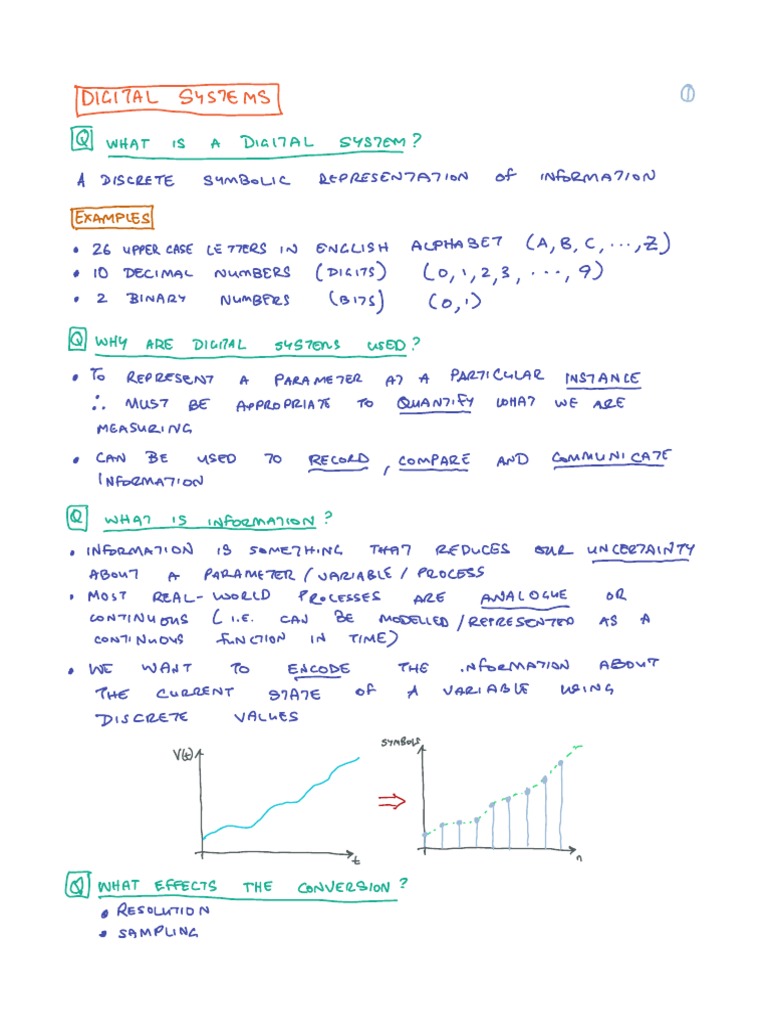 DIGITAL SYSTEMS
1
Q WHAT IS A DIGITAL SYSTEM?
A DISCRETE SYMBOLIC REPRESENTATION OF INFORMATION
EXAMPLES
• 26 UPPER CASE LETTERS IN ENGLISH ALPHABET (A, B, C, ..., Z)
• 10 DECIMAL NUMBERS (DIGITS) (0, 1, 2, 3, ..., 9)
• 2 BINARY NUMBERS (BITS) (0, 1)
Q WHY ARE DIGITAL SYSTEMS USED?
• TO REPRESENT A PARAMETER AT A PARTICULAR INSTANCE
∴ MUST BE APPROPRIATE TO QUANTIFY WHAT WE ARE
MEASURING
• CAN BE USED TO RECORD, COMPARE AND COMMUNICATE
INFORMATION
Q WHAT IS INFORMATION?
• INFORMATION IS SOMETHING THAT REDUCES OUR UNCERTAINTY
ABOUT A PARAMETER/VARIABLE/PROCESS
• MOST REAL-WORLD PROCESSES ARE ANALOGUE OR
CONTINUOUS (I.E. CAN BE MODELLED/REPRESENTED AS A
CONTINUOUS FUNCTION IN TIME)
• WE WANT TO ENCODE THE INFORMATION ABOUT
THE CURRENT STATE OF A VARIABLE USING
DISCRETE VALUES
V(t)
SYMBOLS
⇒
t
n
Q WHAT EFFECTS THE CONVERSION?
• RESOLUTION
• SAMPLING